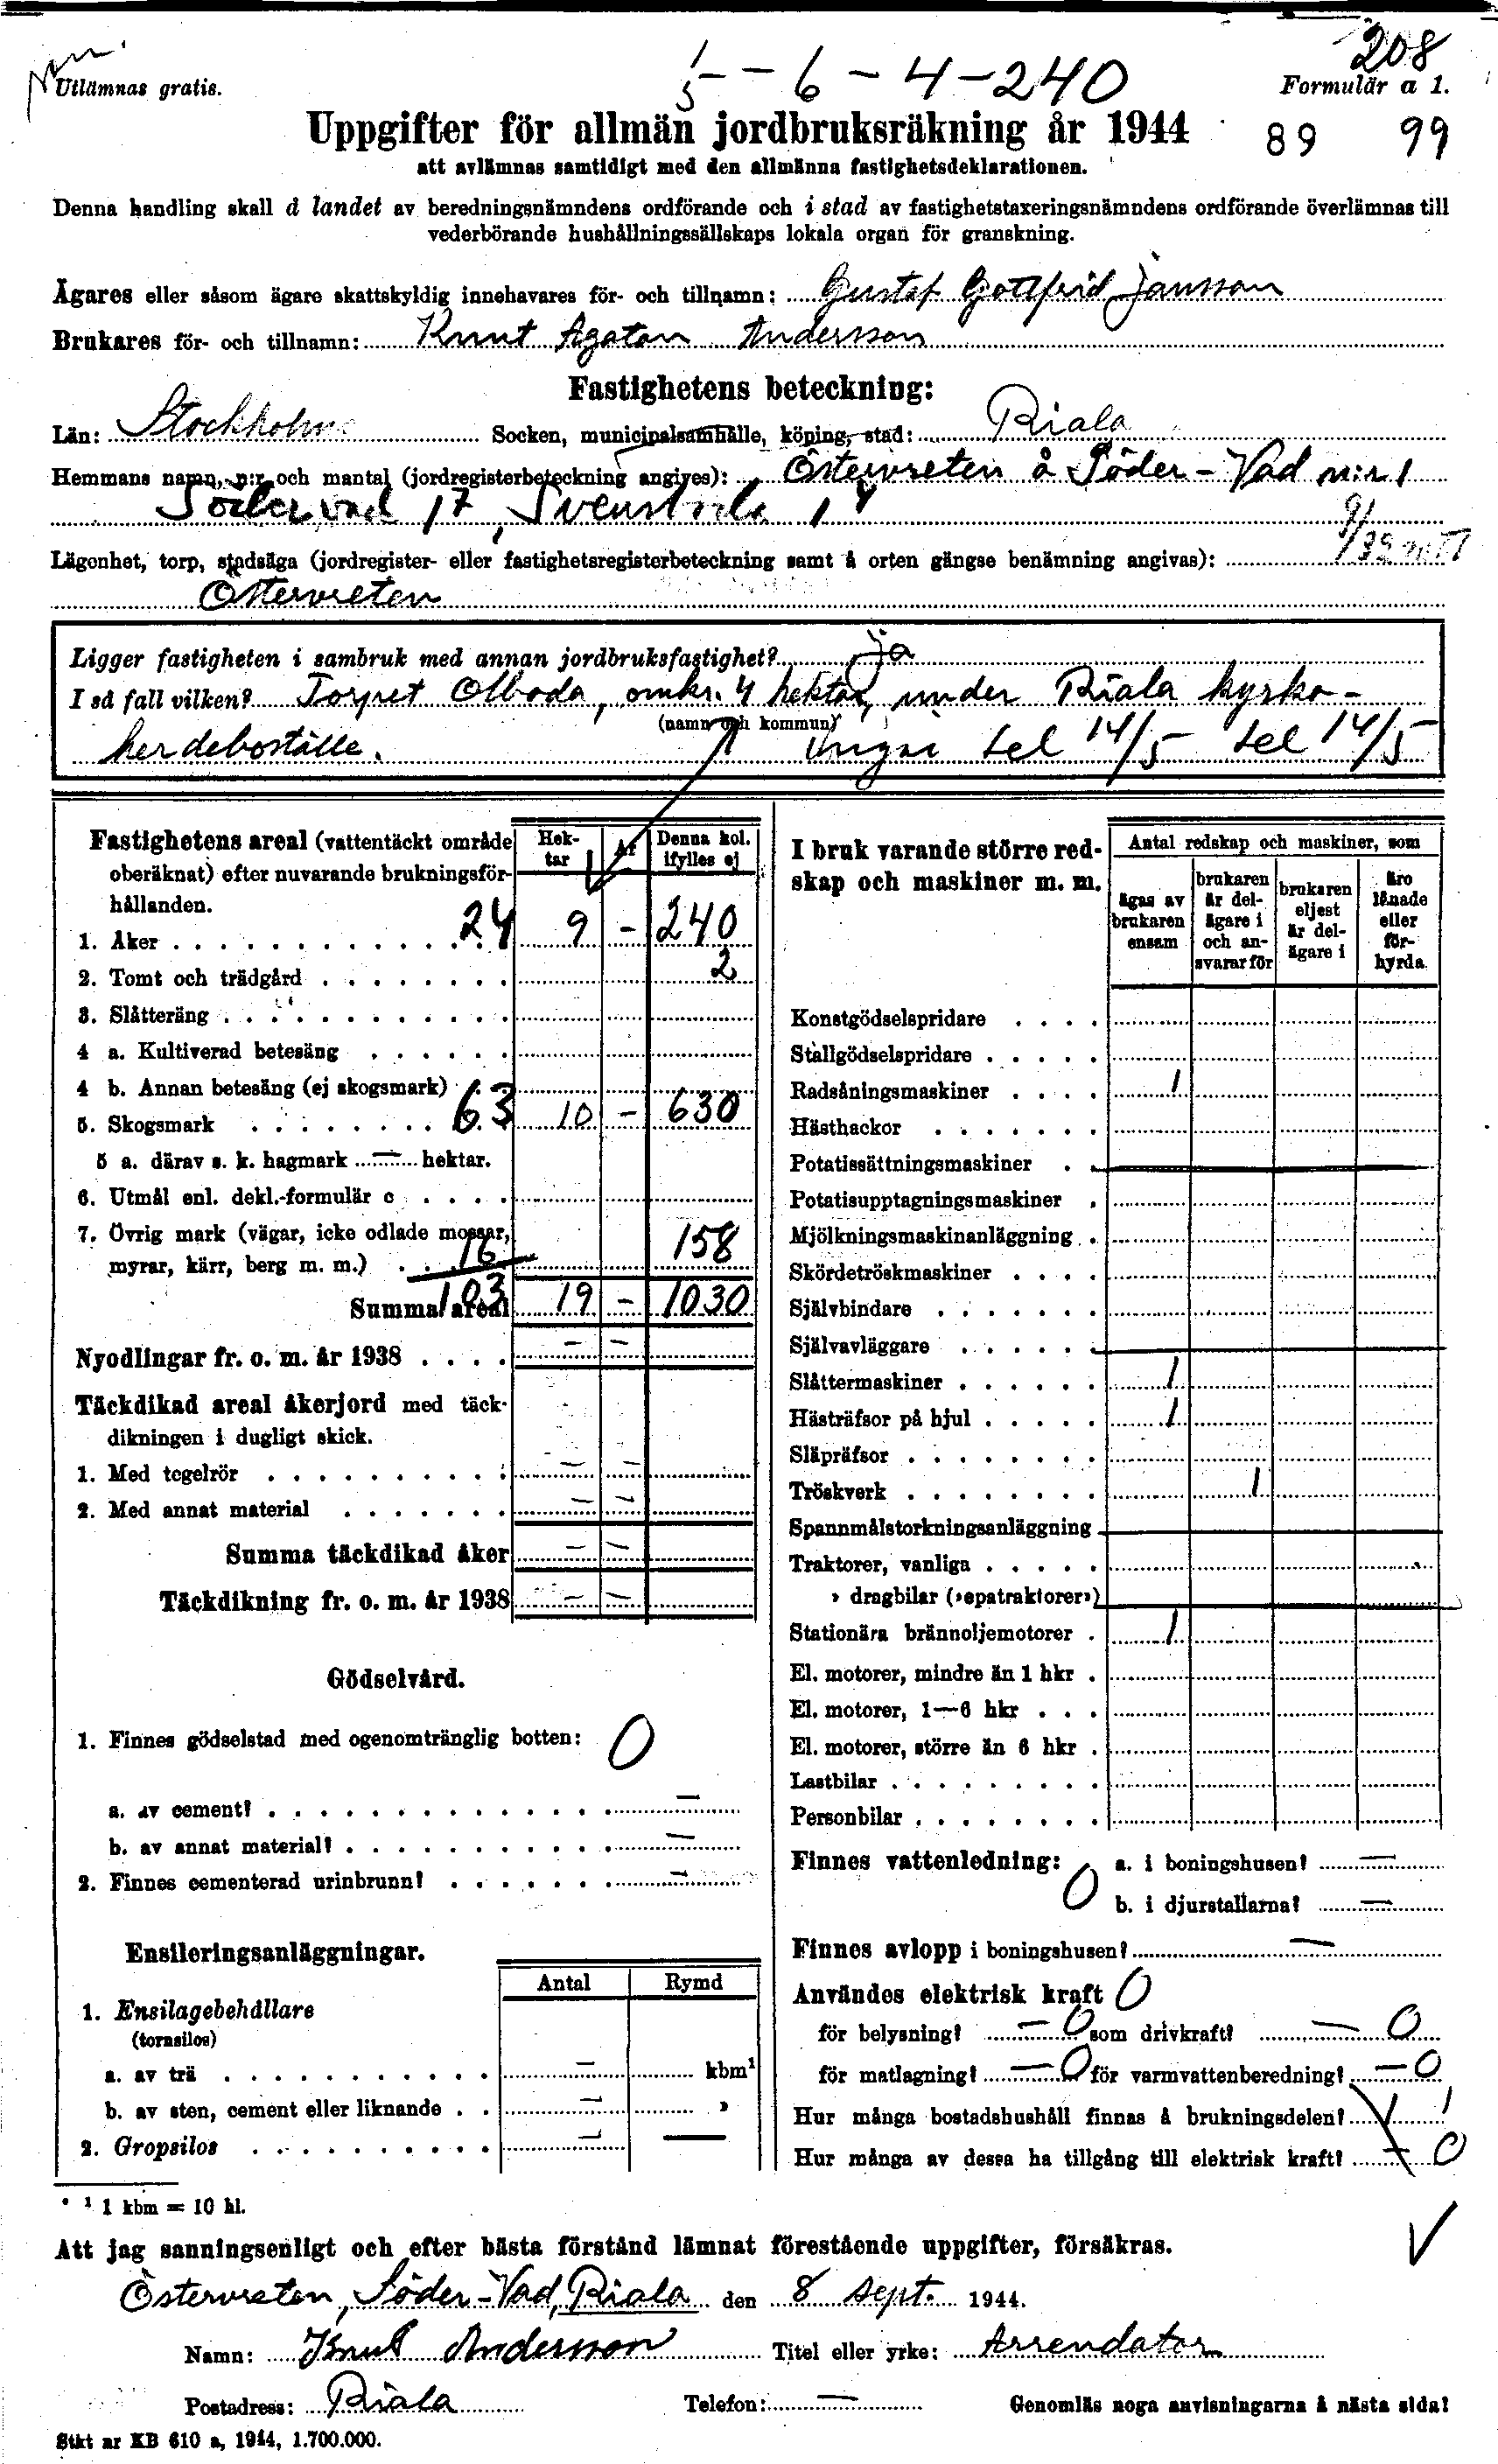 208
Utlämnas gratis.
5 - - 6 - 4 - 240
Formulär a 1.
Uppgifter för allmän jordbruksräkning år 1944
89 99
att avlämnas samtidigt med den allmänna fastighetsdeklarationen.
Denna handling skall å landet av beredningsnämndens ordförande och i stad av fastighetstaxeringsnämndens ordförande överlämnas till
vederbörande hushållningssällskaps lokala organ för granskning.
Ägares eller såsom ägare skattskyldig innehavares för- och tillnamn: Gustaf Gottfrid Jansson
Brukares för- och tillnamn: Knut Agaton Andersson
Fastighetens beteckning:
Län: Stockholms Socken, municipalsamhälle, köping, stad: Riala
Hemmans namn, n:r och mantal (jordregisterbeteckning angives): Östervreten å Söder-Vad n:r 1
Södervad 1 7, 1 4
Lägenhet, torp, stadsäga (jordregister- eller fastighetsregisterbeteckning samt å orten gängse benämning angivas):
Östervreten
Ligger fastigheten i sambruk med annan jordbruksfastighet? ja
I så fall vilken? Torpet Olboda, omkr. 4 hektar, under Riala kyrko-
(namn och kommun)
herdeboställe. tel 14/5 tel 14/5
Fastighetens areal (vattentäckt område oberäknat) efter nuvarande brukningsförhållanden.
Hektar Ar Denna kol. ifylles ej
1. Åker 24 9 - 240
2. Tomt och trädgård 2
3. Slåtteräng
4 a. Kultiverad betesäng
4 b. Annan betesäng (ej skogsmark)
5. Skogsmark 63 10 - 630
5 a. därav s. k. hagmark — hektar.
6. Utmål enl. dekl.-formulär c
7. Övrig mark (vägar, icke odlade mossar,
myrar, kärr, berg m. m.) 16 158
Summa areal 103 19 - 1030
Nyodlingar fr. o. m. år 1938 - -
Täckdikad areal åkerjord med täck-
dikningen i dugligt skick.
1. Med tegelrör - -
2. Med annat material - -
Summa täckdikad åker - -
Täckdikning fr. o. m. år 1938 - -
Gödselvård.
1. Finnes gödselstad med ogenomtränglig botten: 0
a. av cement? -
b. av annat material? -
2. Finnes cementerad urinbrunn? -
Ensileringsanläggningar.
Antal Rymd
1. Ensilagebehållare
(tornsilos)
a. av trä - kbm¹
b. av sten, cement eller liknande - »
2. Gropsilos - —
I bruk varande större redskap och maskiner m. m.
Antal redskap och maskiner, som
ägas av brukaren ensam
brukaren är delägare i och ansvarar för
brukaren eljest är delägare i
äro lånade eller förhyrda
Konstgödselspridare
Stallgödselspridare
Radsåningsmaskiner 1
Hästhackor
Potatissättningsmaskiner
Potatisupptagningsmaskiner
Mjölkningsmaskinanläggning
Skördetröskmaskiner
Självbindare
Självavläggare
Slåttermaskiner 1
Hästräfsor på hjul 1
Släpräfsor
Tröskverk 1
Spannmålstorkningsanläggning
Traktorer, vanliga
» dragbilar (»epatraktorer»)
Stationära brännoljemotorer 1
El. motorer, mindre än 1 hkr
El. motorer, 1—6 hkr
El. motorer, större än 6 hkr
Lastbilar
Personbilar
Finnes vattenledning: 0 a. i boningshusen? —
b. i djurstallarna? —
Finnes avlopp i boningshusen? —
Användes elektrisk kraft 0
för belysning? — 0 som drivkraft? — 0
för matlagning? — 0 för varmvattenberedning? — 0
Hur många bostadshushåll finnas å brukningsdelen? 1 1
Hur många av dessa ha tillgång till elektrisk kraft? — 0
¹ 1 kbm = 10 hl.
Att jag sanningsenligt och efter bästa förstånd lämnat förestående uppgifter, försäkras.
Östervreten, Söder-Vad, Riala den 8 sept. 1944.
Namn: Knut Andersson Titel eller yrke: Arrendator
Postadress: Riala Telefon: — Genomläs noga anvisningarna å nästa sida!
Stkt nr KB 610 a, 1944, 1.700.000.